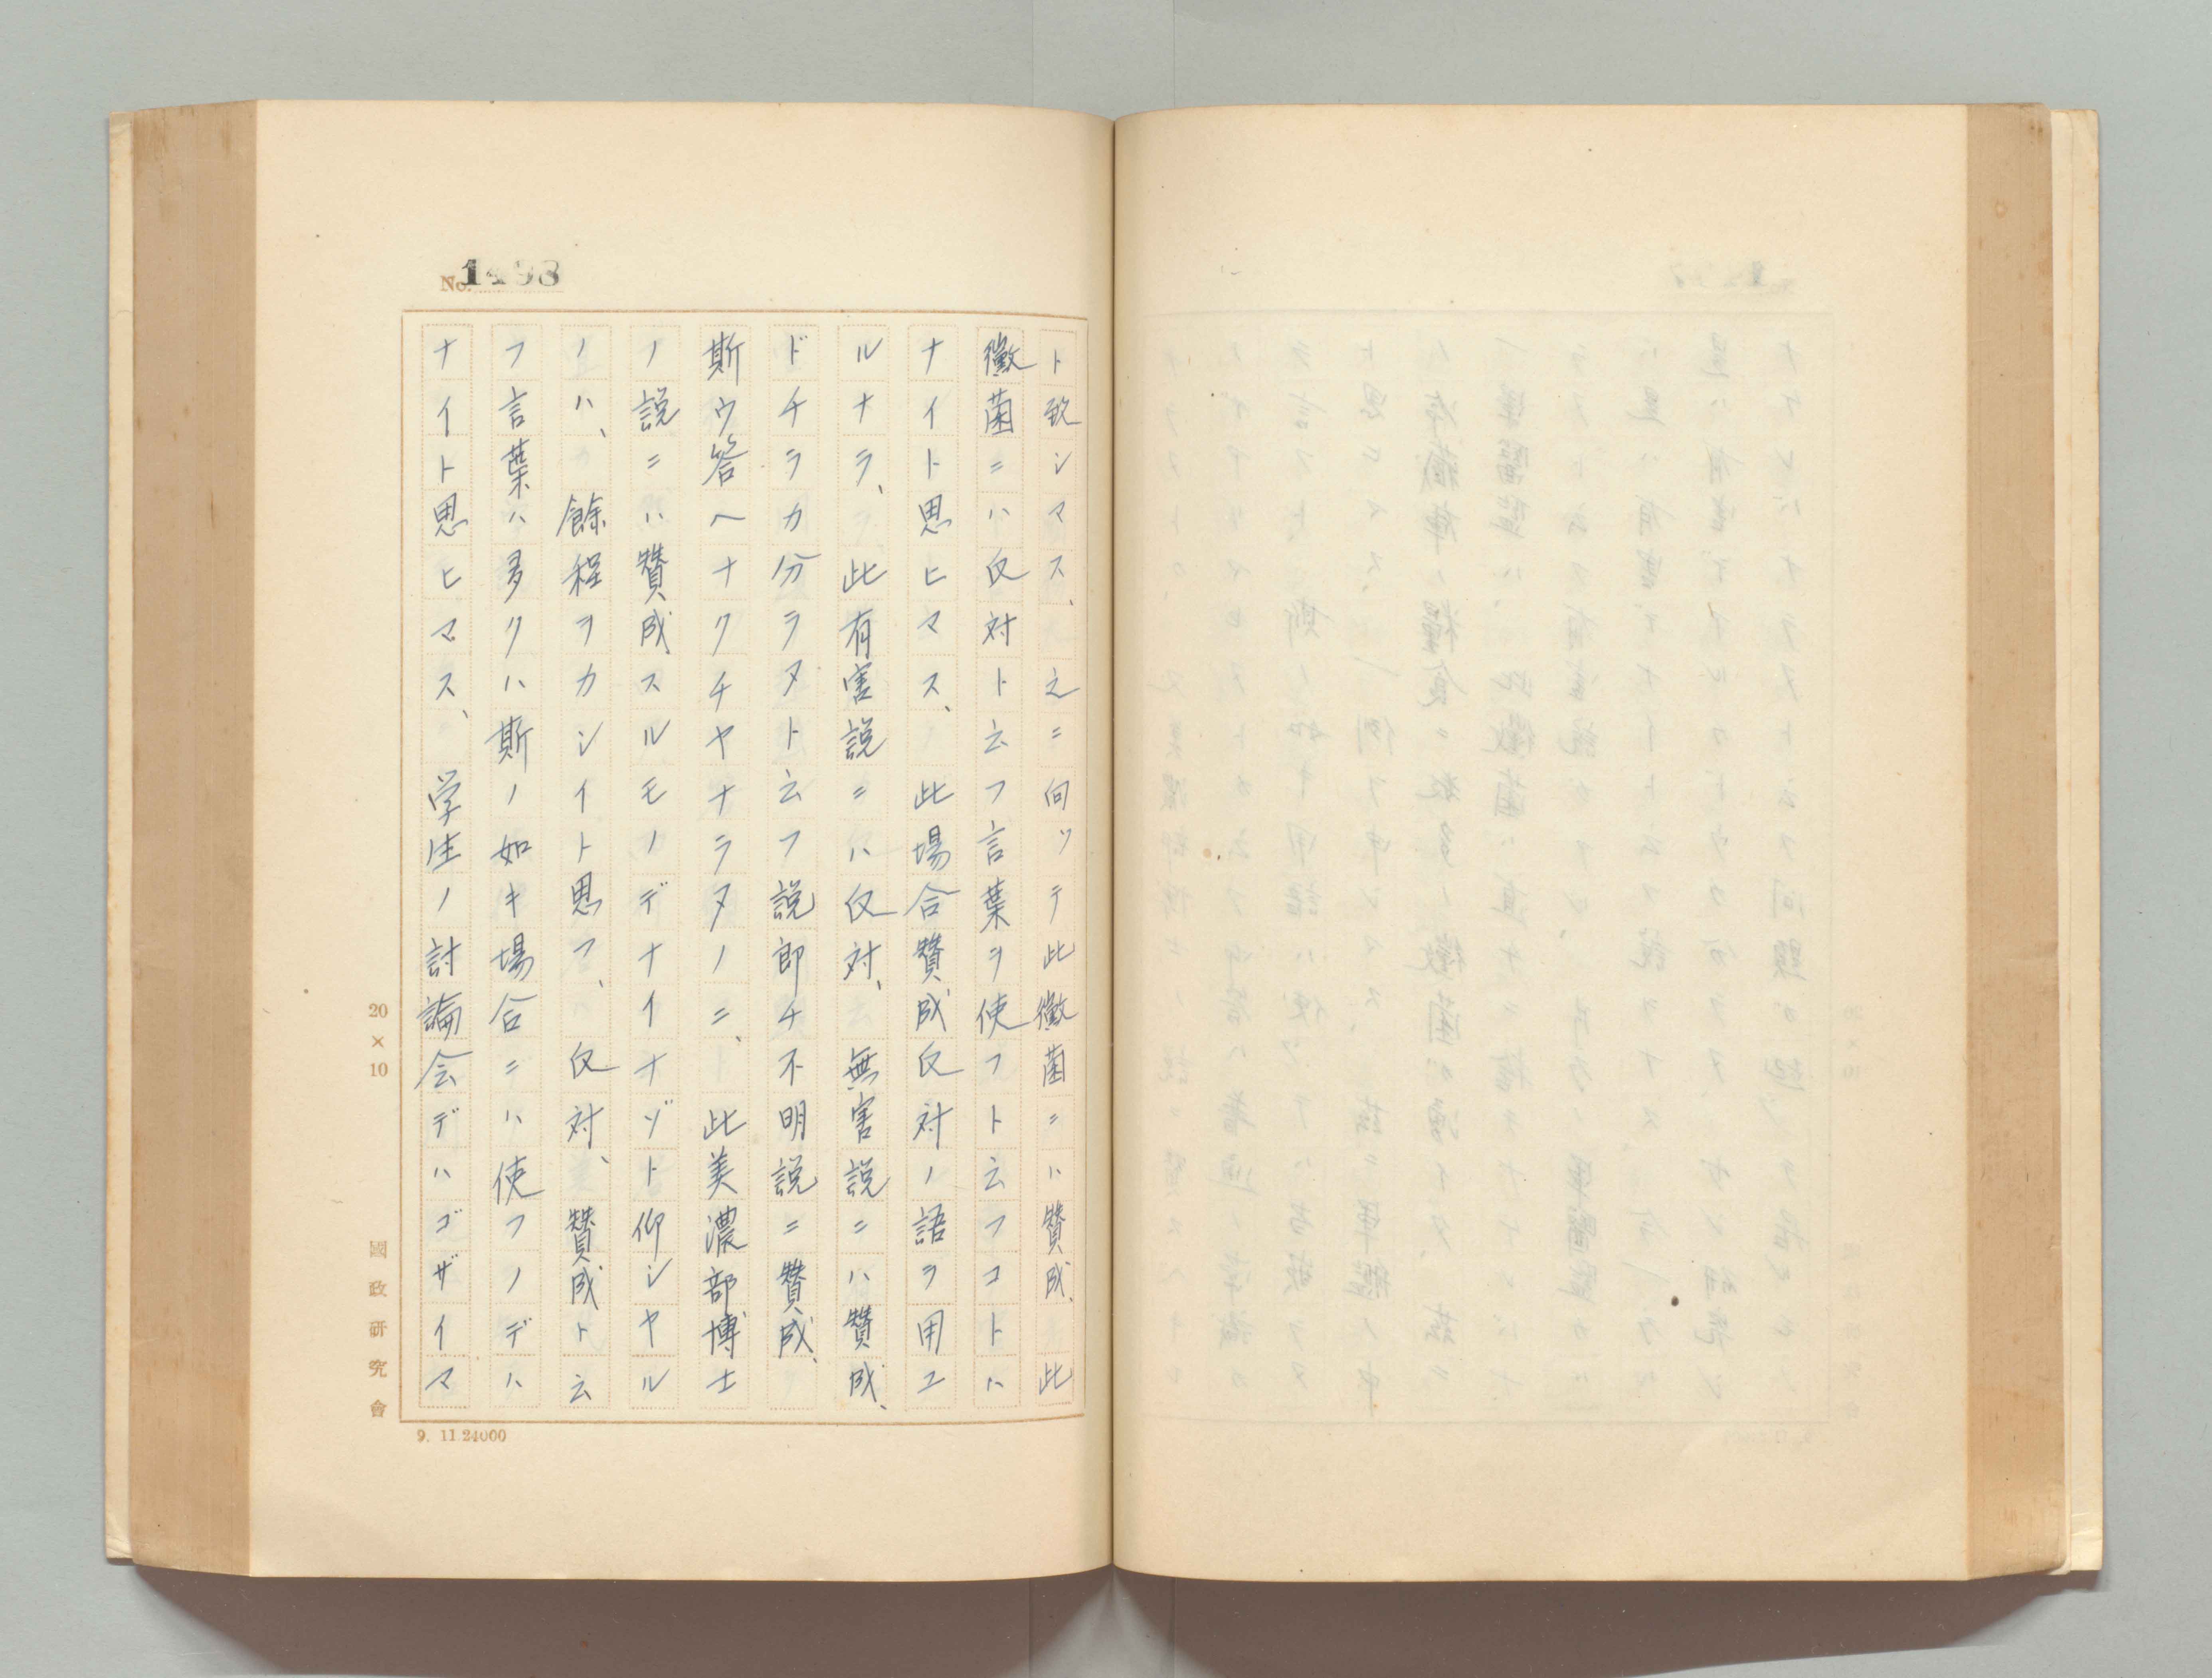 No. 1498
ト致シマス、之ニ向ツテ此黴菌ニハ賛成、此
黴菌ニハ反対ト云フ言葉ヲ使フト云フコトハ
ナイト思ヒマス、此場合賛成反対ノ語ヲ用ユ
ルナラ、此有害説ニハ反対、無害説ニハ賛成、
ドチラカ分ラヌト云フ説即チ不明説ニ賛成、
斯ウ答ヘナクチヤナラヌノニ、此美濃部博士
ノ説ニハ賛成スルモノデナイナゾト仰シヤル
ノハ、餘程ヲカシイト思フ、反対、賛成ト云
フ言葉ハ多クハ斯ノ如キ場合ニハ使フノデハ
ナイト思ヒマス、学生ノ討論会デハゴザイマ
20×10
國政研究會
9. 11.24000